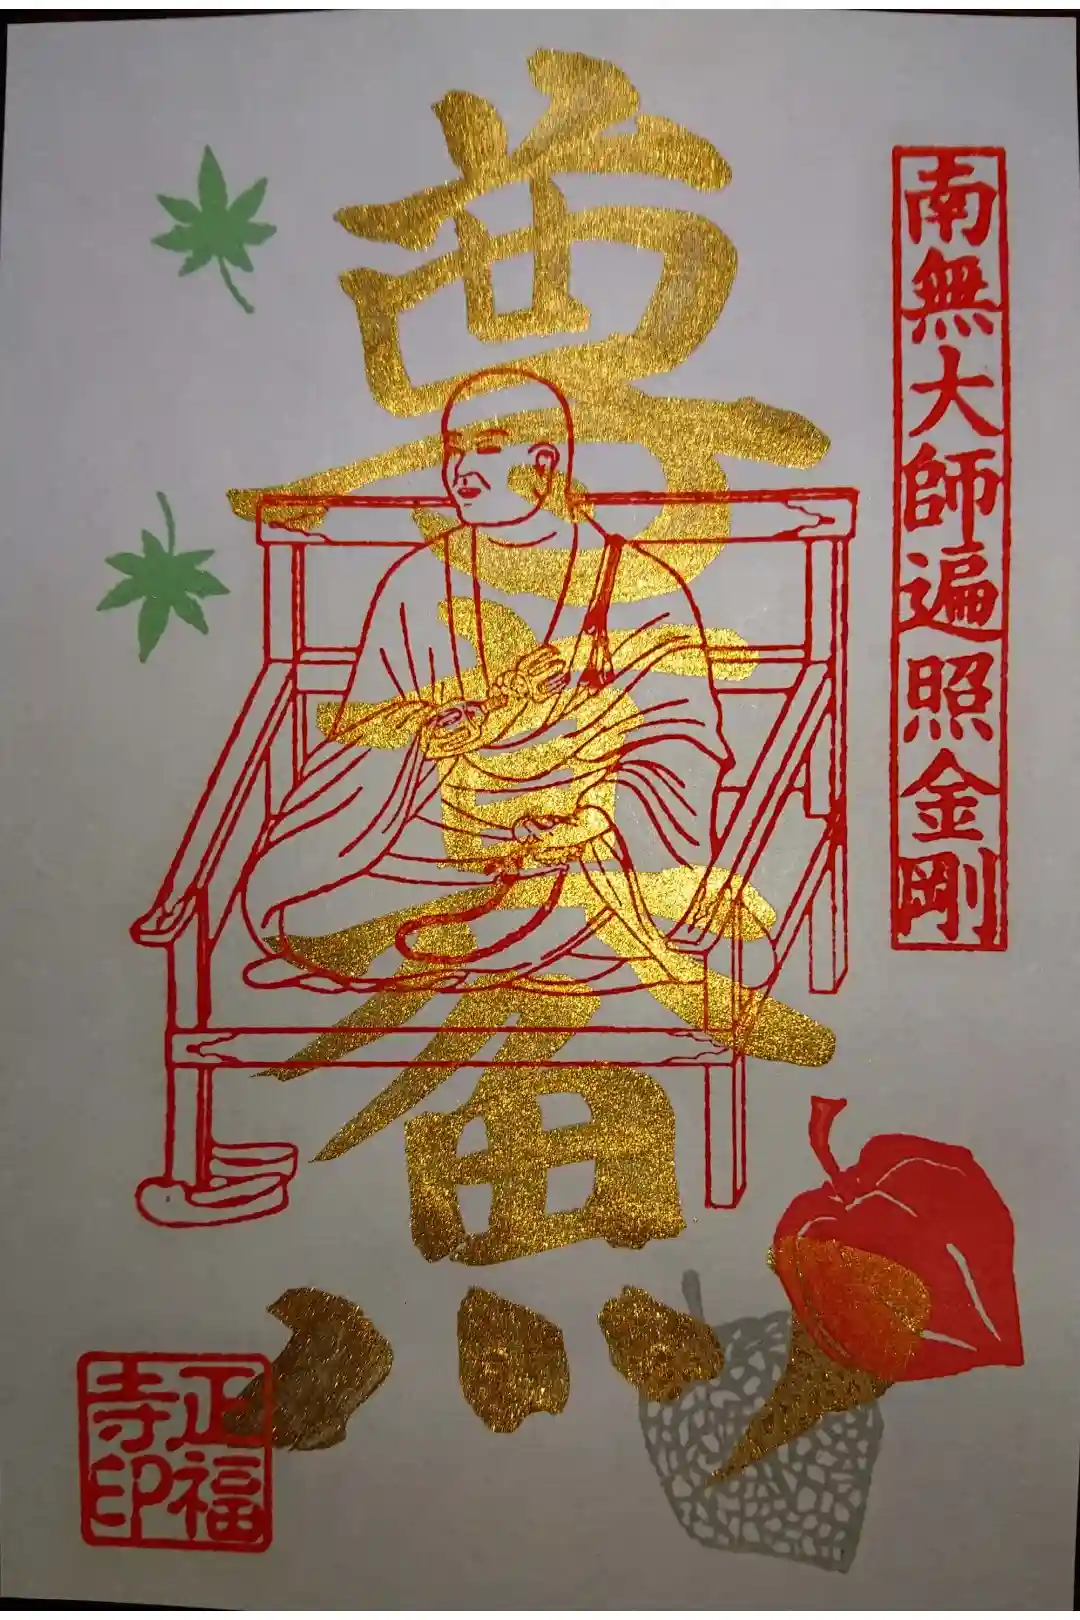 南無大師遍照金剛
尊真魚
正福
寺印